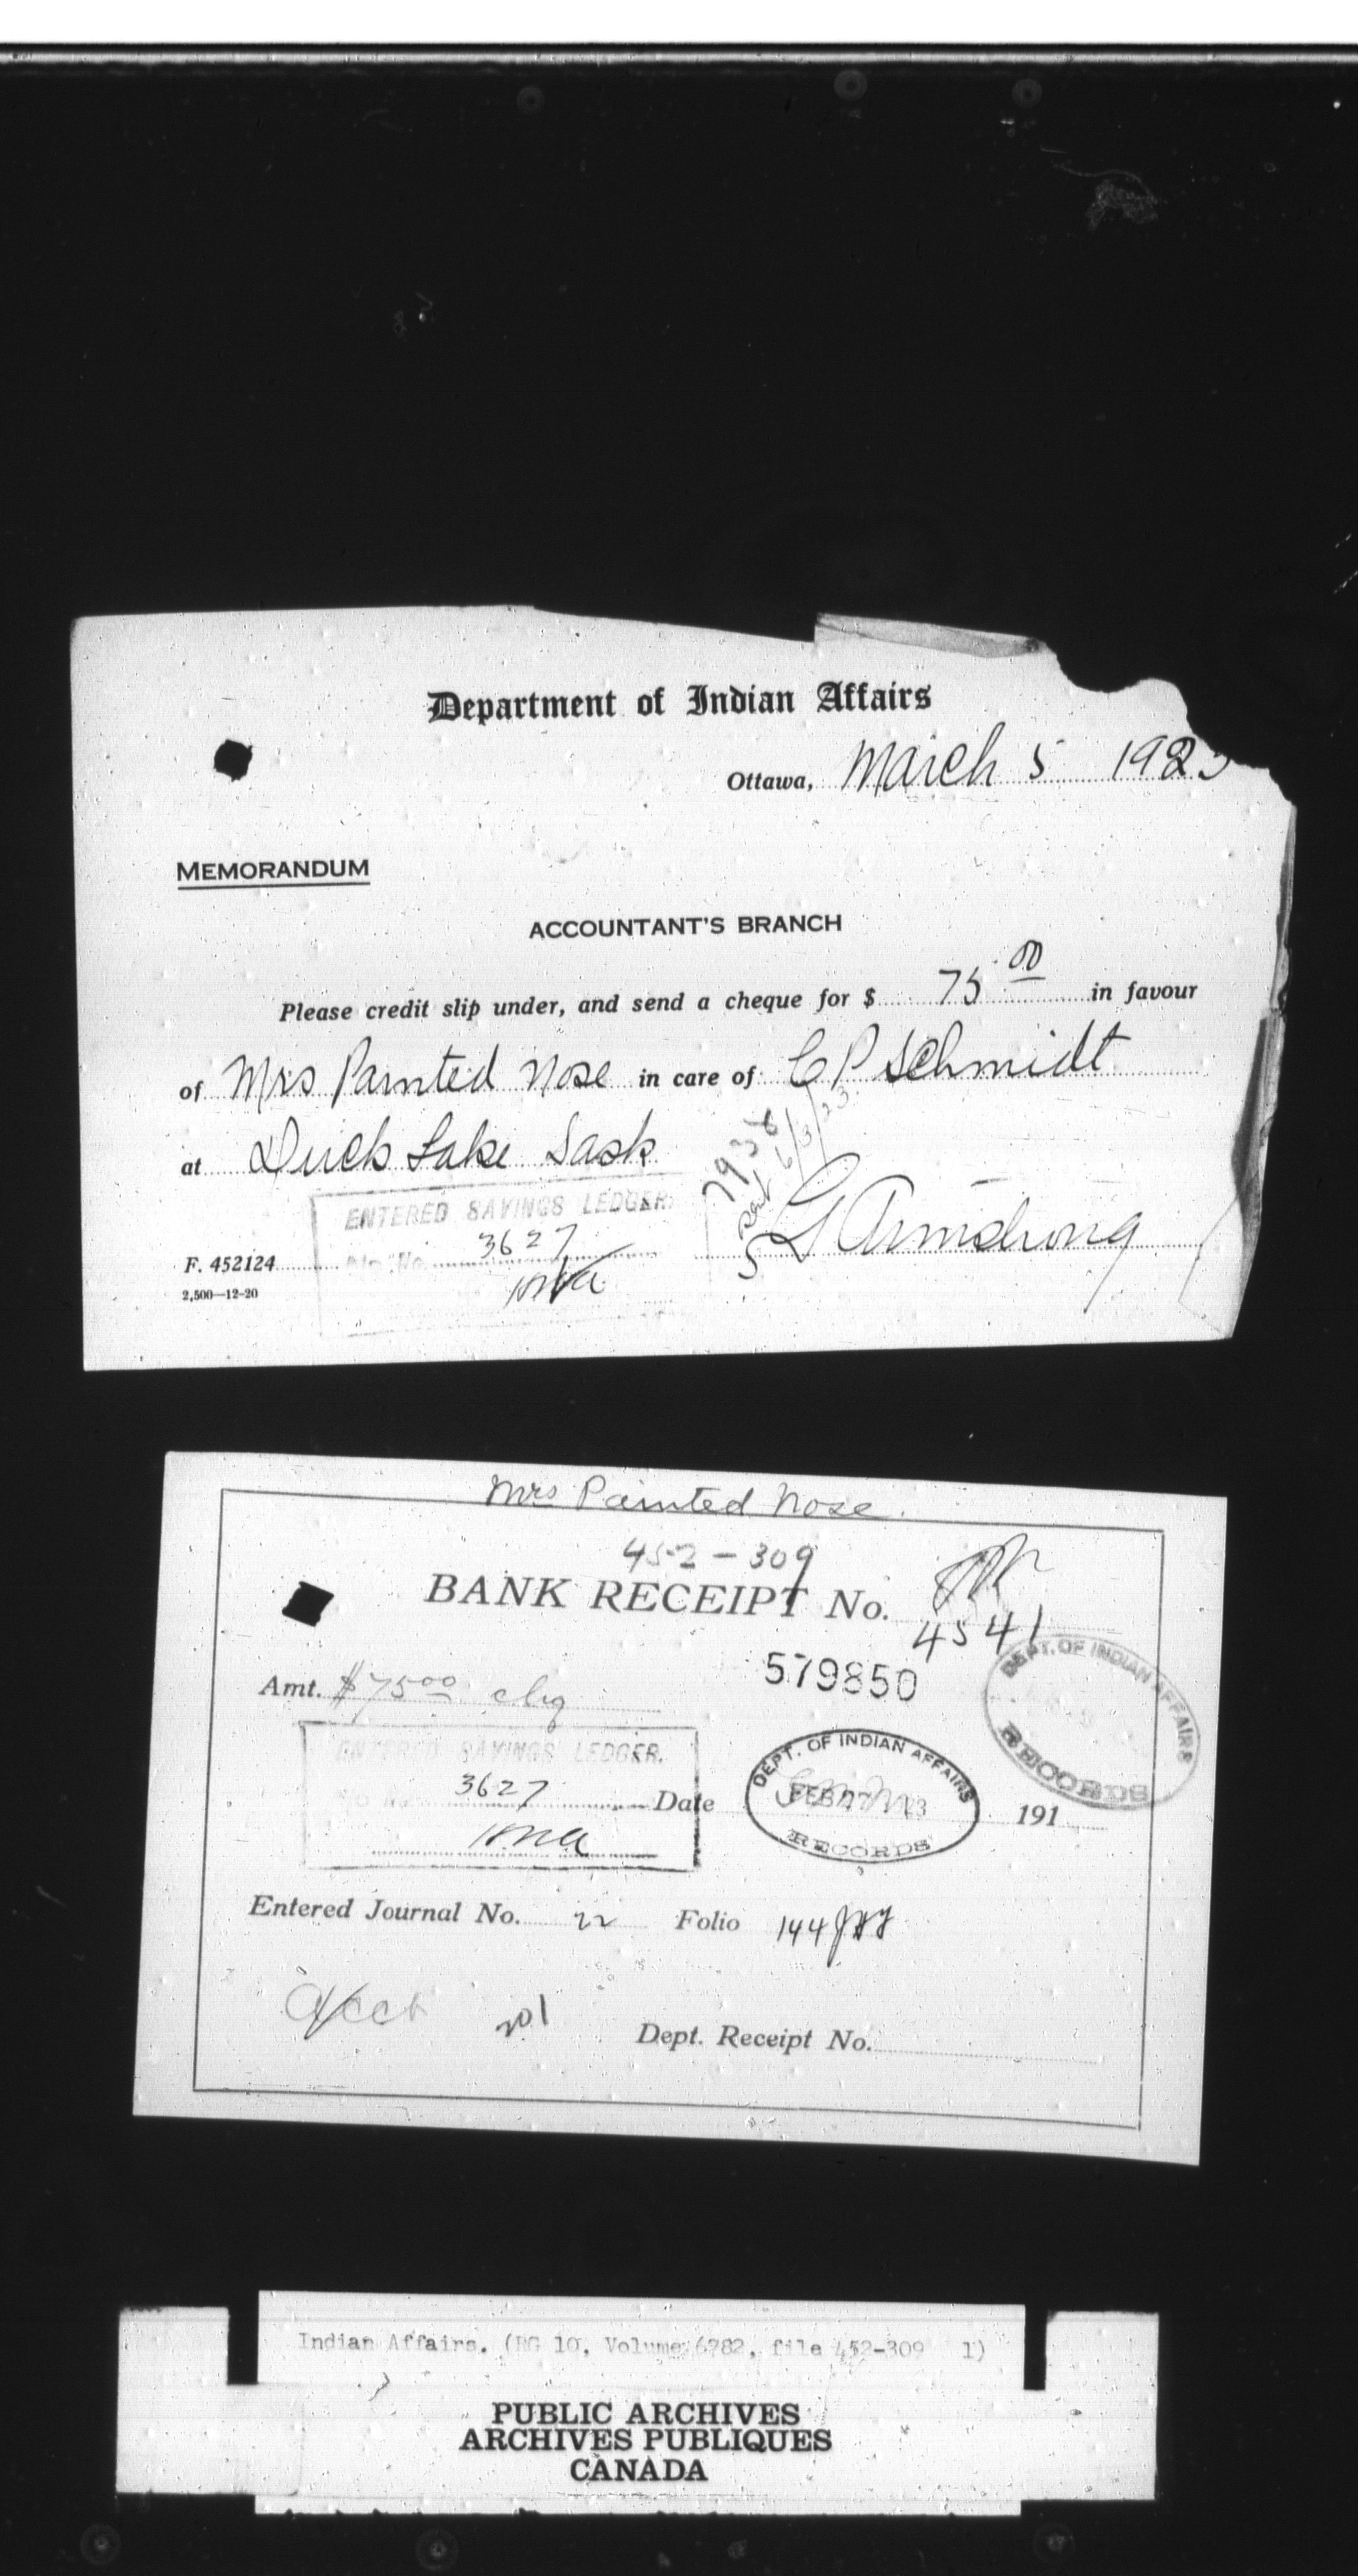 Department of Indian Affairs
Ottawa, March 5 1923
MEMORANDUM
ACCOUNTANT'S BRANCH
Please credit slip under, and send a cheque for $ 75.00 in favour
of Mrs Painted Nose in care of C P Schmidt
at Duck Lake Sask
7938
6/3/23
ENTERED SAVINGS LEDGER.
No. 3627
G Armstrong
F. 452124
2,500—12-20
Mrs Painted Nose.
452-309
BANK RECEIPT No.
4541
579850
DEPT. OF INDIAN AFFAIRS
RECORDS
Amt. $75.00 chq
ENTERED SAVINGS LEDGER.
3627
Date
DEPT. OF INDIAN AFFAIRS
FEB 27 1923
RECORDS
191
Entered Journal No. 22 Folio 144
Acct 201
Dept. Receipt No.
Indian Affairs. (RG 10, Volume 6782, file 452-309 1)
PUBLIC ARCHIVES
ARCHIVES PUBLIQUES
CANADA